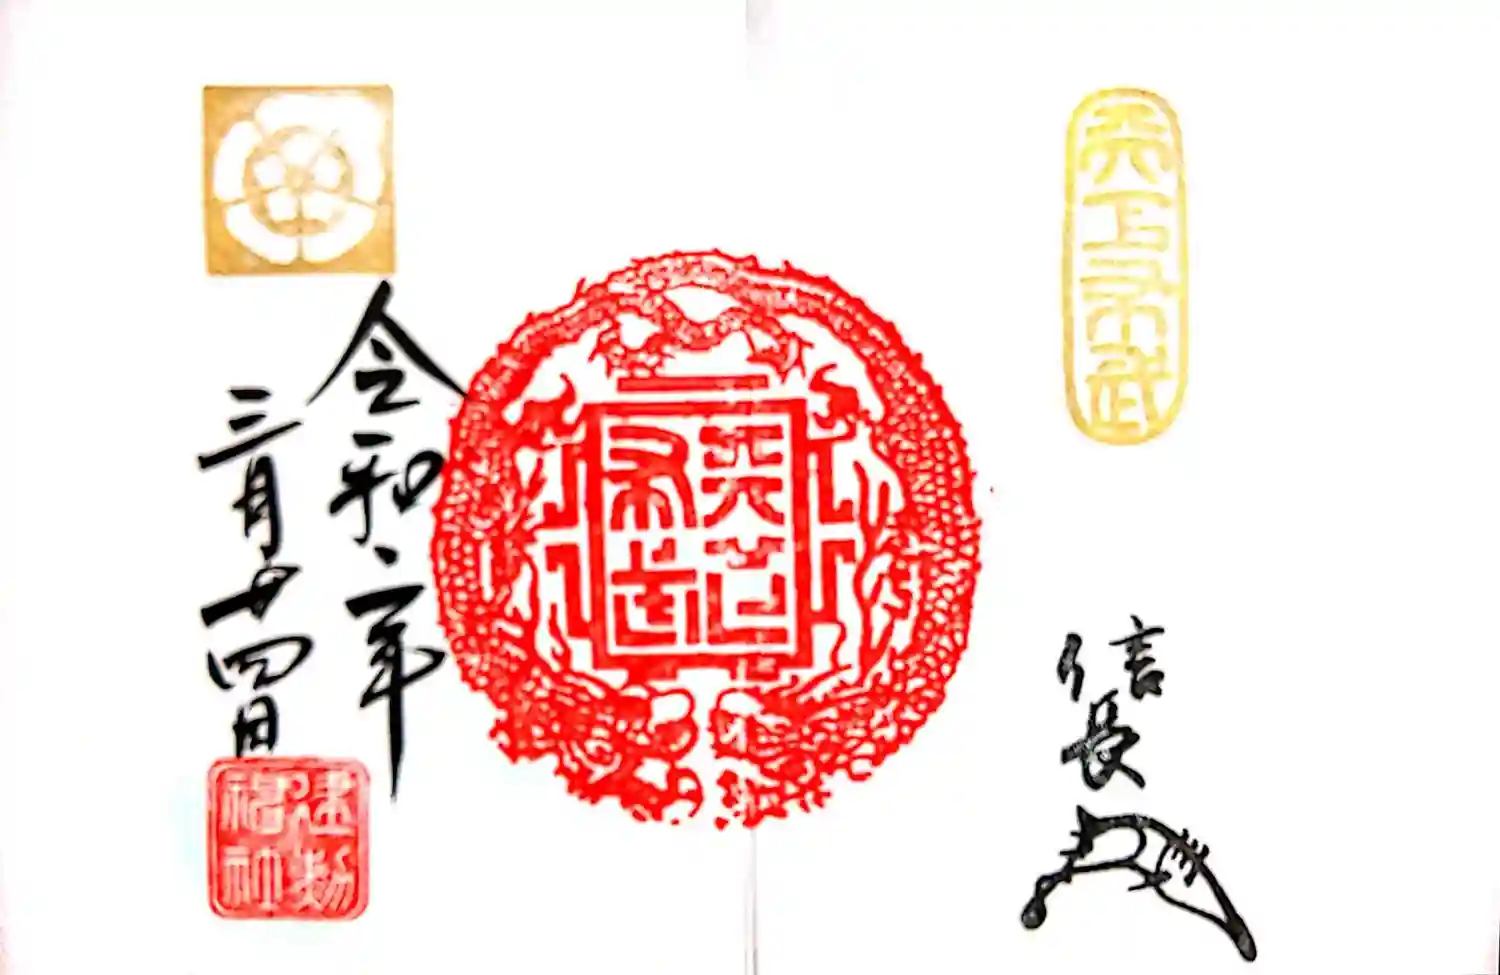 天下布武
信長
天下布武
令和二年
三月廿四日
建勲神社